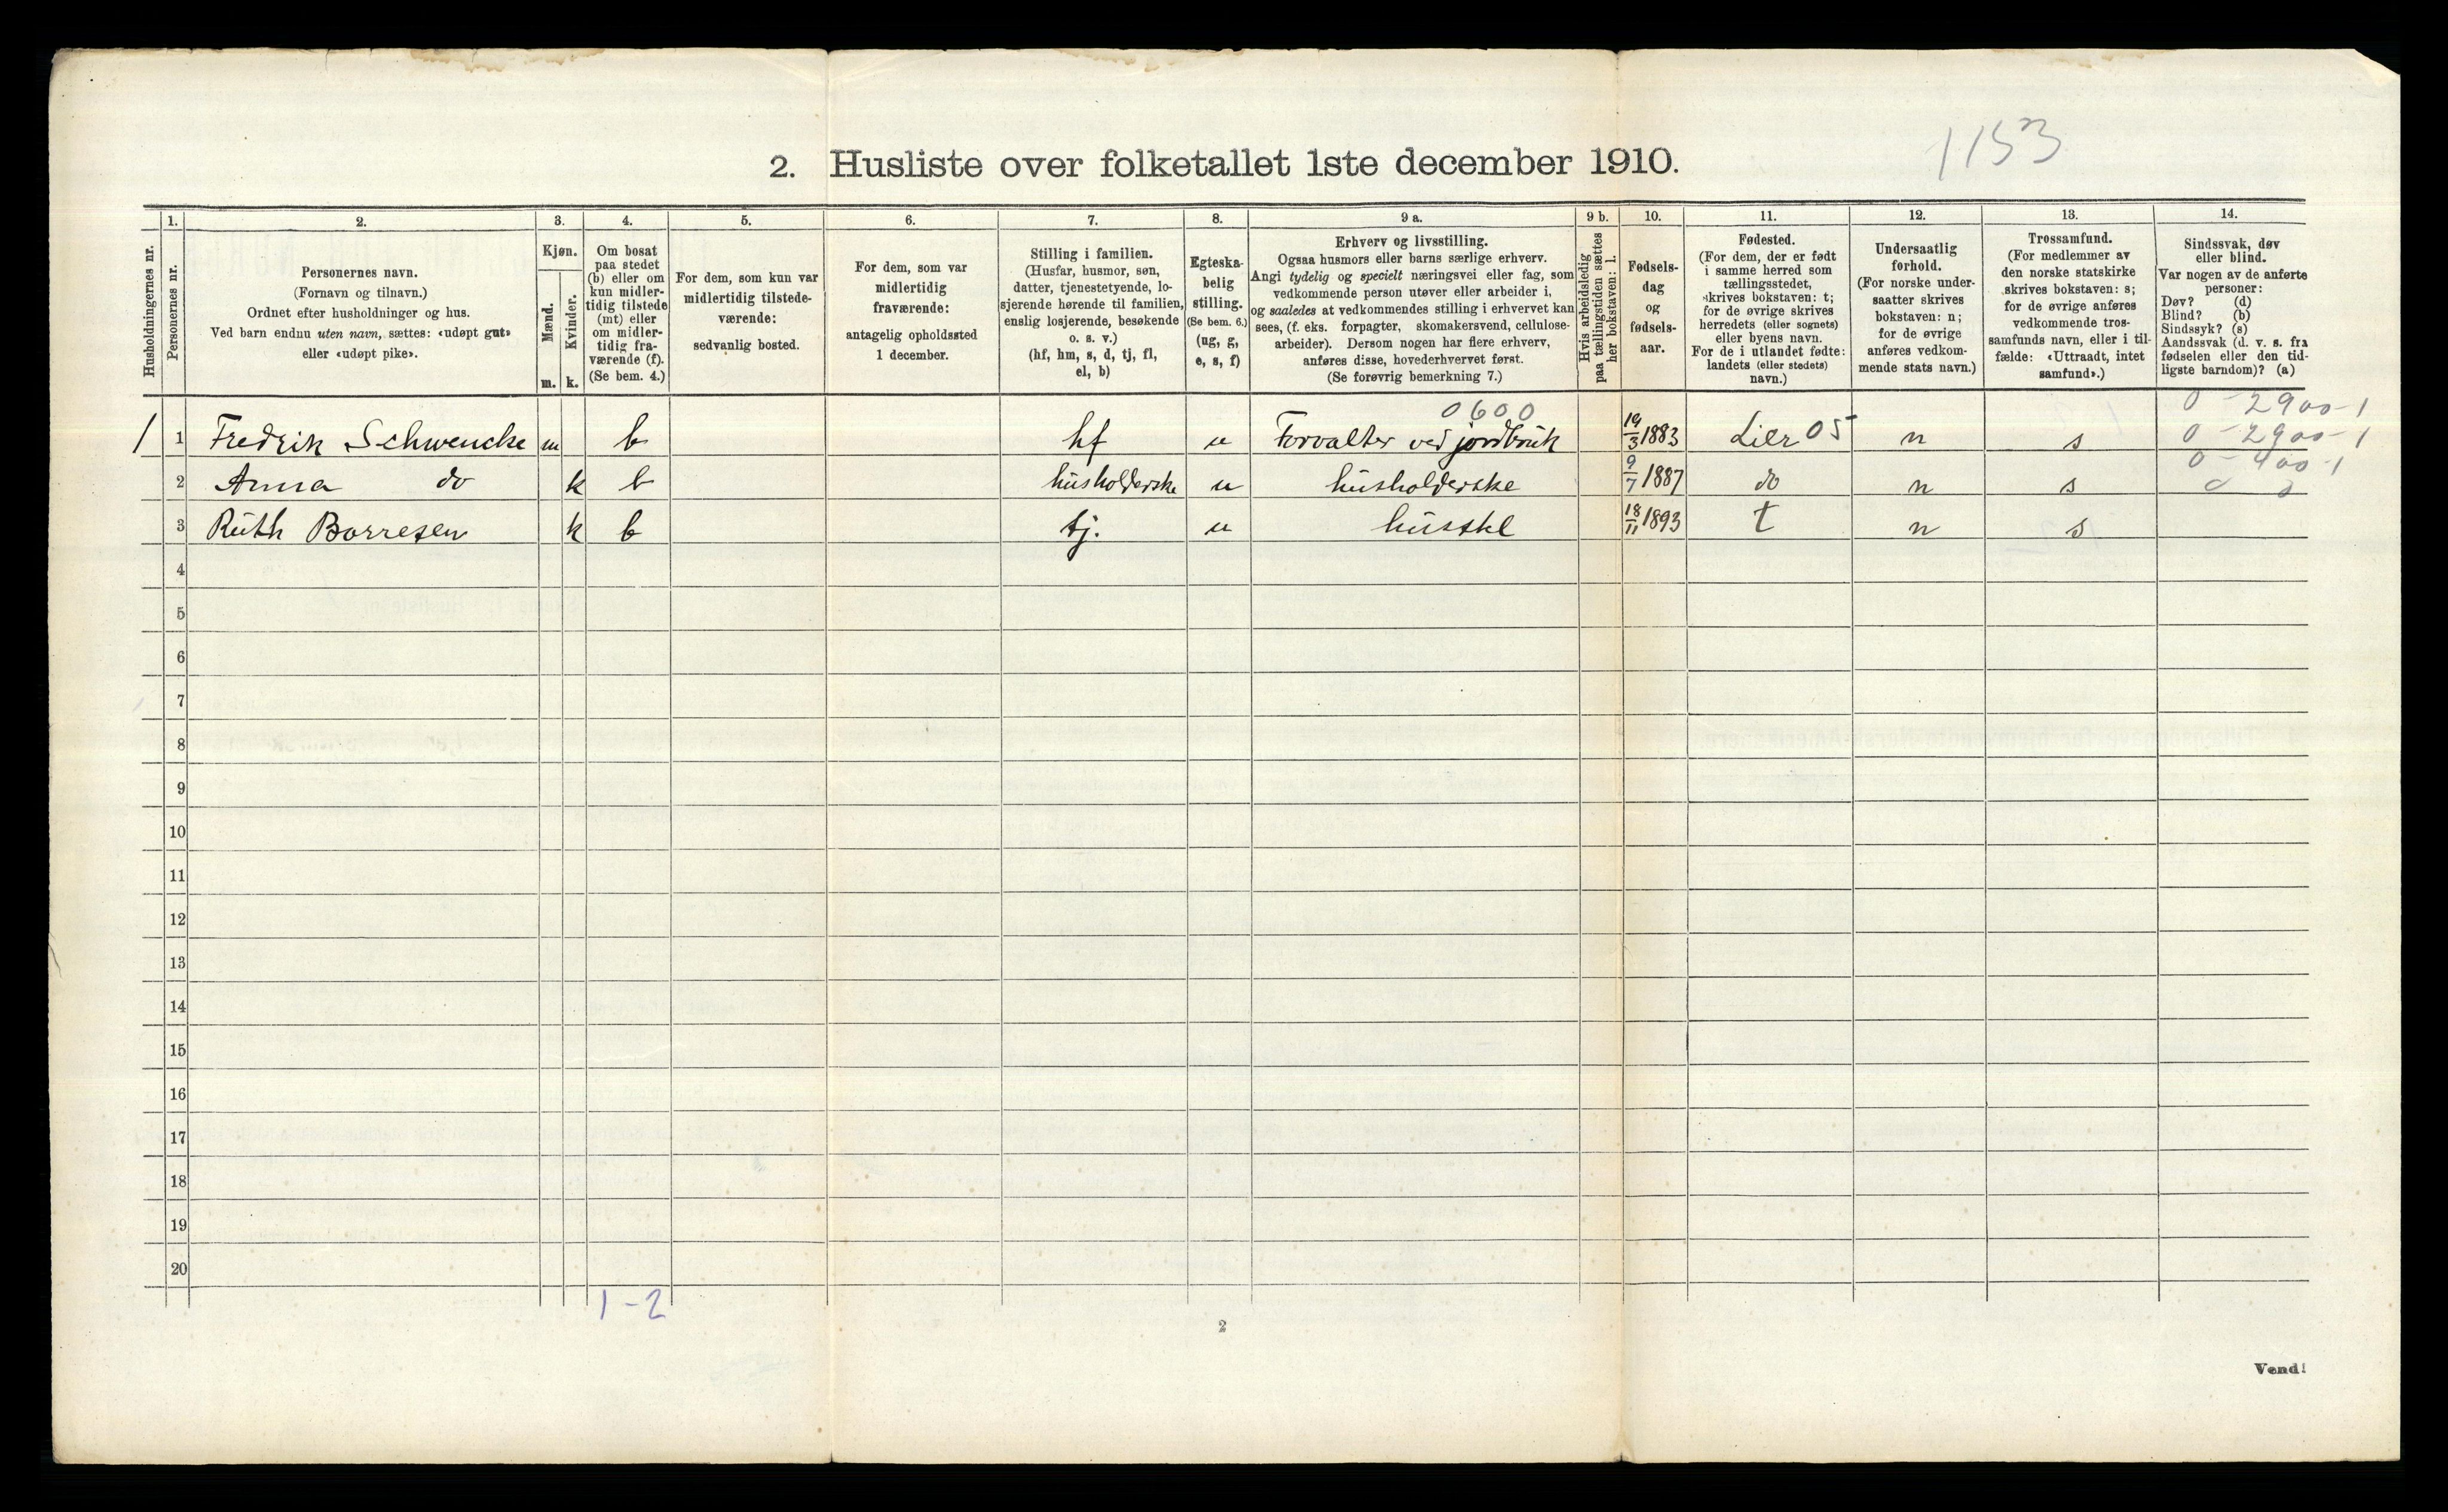 1153
2. Husliste over folketallet 1ste december 1910.
Husholdningernes nr.
1.
Personernes nr.
2.
Personernes navn.
(Fornavn og tilnavn.)
Ordnet efter husholdninger og hus.
Ved barn endnu uten navn, sættes: «udøpt gut»
eller «udøpt pike».
3.
Kjøn.
Mænd.
Kvinder.
m. k.
4.
Om bosat
paa stedet
(b) eller om
kun midler-
tidig tilstede
(mt) eller
om midler-
tidig fra-
værende (f).
(Se bem. 4.)
5.
For dem, som kun var
midlertidig tilstede-
værende:
sedvanlig bosted.
6.
For dem, som var
midlertidig
fraværende:
antagelig opholdssted
1 december.
7.
Stilling i familien.
(Husfar, husmor, søn,
datter, tjenestetyende, lo-
sjerende hørende til familien,
enslig losjerende, besøkende
o. s. v.)
(hf, hm, s, d, tj, fl,
el, b)
8.
Egteska-
belig
stilling.
(Se bem. 6.)
(ug, g,
e, s, f)
9 a.
Erhverv og livsstilling.
Ogsaa husmors eller barns særlige erhverv.
Angi tydelig og specielt næringsvei eller fag, som
vedkommende person utøver eller arbeider i,
og saaledes at vedkommendes stilling i erhvervet kan
sees, (f. eks. forpagter, skomakersvend, cellulose-
arbeider). Dersom nogen har flere erhverv,
anføres disse, hovederhvervet først.
(Se forøvrig bemerkning 7.)
9 b.
Hvis arbeidsledig
paa tællingstiden sættes
her bokstaven: l.
10.
Fødsels-
dag
og
fødsels-
aar.
11.
Fødested.
(For dem, der er født
i samme herred som
tællingsstedet,
skrives bokstaven: t;
for de øvrige skrives
herredets (eller sognets)
eller byens navn.
For de i utlandet fødte:
landets (eller stedets)
navn.)
12.
Undersaatlig
forhold.
(For norske under-
saatter skrives
bokstaven: n;
for de øvrige
anføres vedkom-
mende stats navn.)
13.
Trossamfund.
(For medlemmer av
den norske statskirke
skrives bokstaven: s;
for de øvrige anføres
vedkommende tros-
samfunds navn, eller i til-
fælde: «Uttraadt, intet
samfund».)
14.
Sindssvak, døv
eller blind.
Var nogen av de anførte
personer:
Døv? (d)
Blind? (b)
Sindssyk? (s)
Aandssvak (d. v. s. fra
fødselen eller den tid-
ligste barndom)? (a)
0600 0-2900-1
1 1 Fredrik Schwencke m b hf u Forvalter ved jordbruk 19/3 1883 Lier 05 n s 0-2900-1
0-400-1
2 Anna do k b husholderske u husholderske 9/7 1887 do n s
3 Ruth Borresen k b tj. u 18/11 1893 t n s
4
5
6
7
8
9
10
11
12
13
14
15
16
17
18
19
20
1-2
2
Vend!